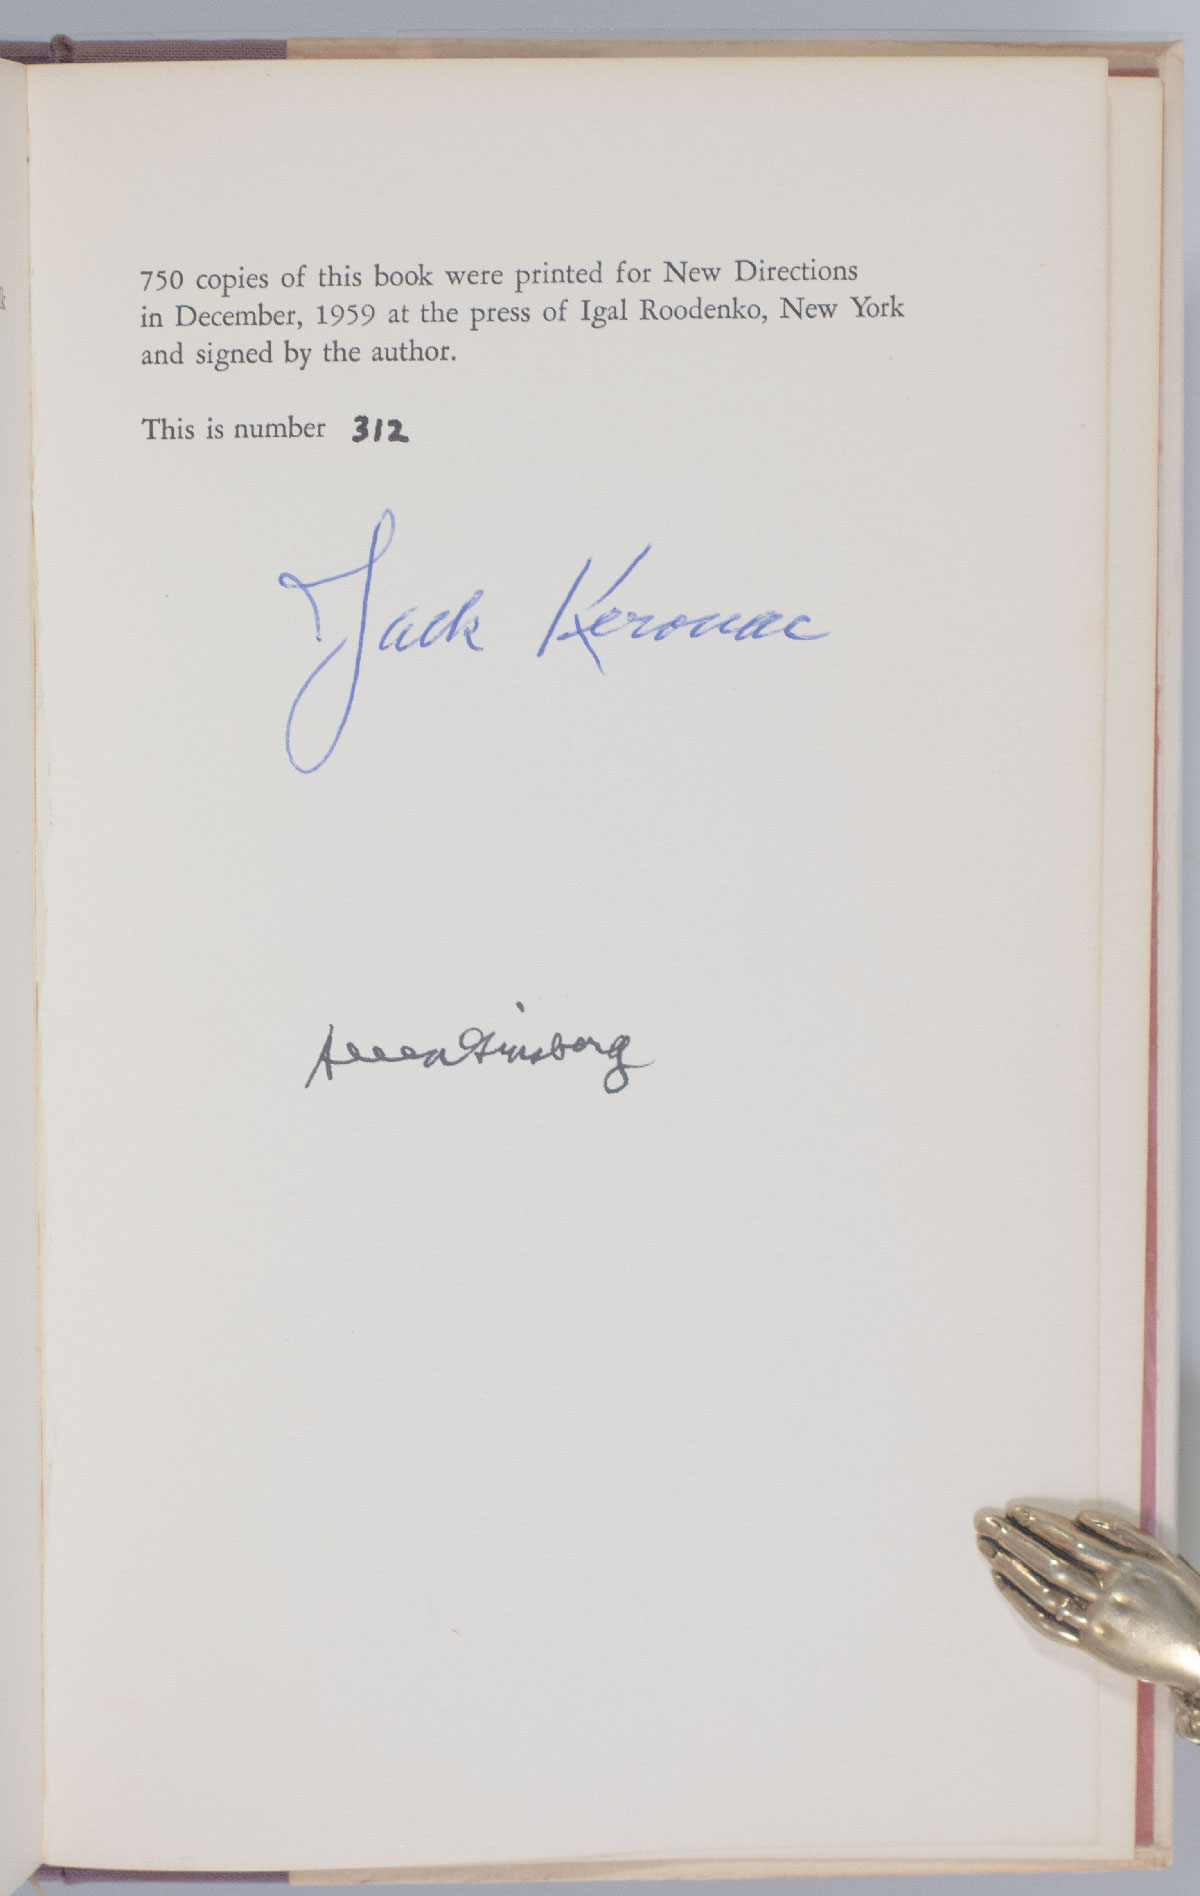 750 copies of this book were printed for New Directions
in December, 1959 at the press of Igal Roodenko, New York
and signed by the author.
This is number 312
Jack Kerouac
Allen Ginsberg